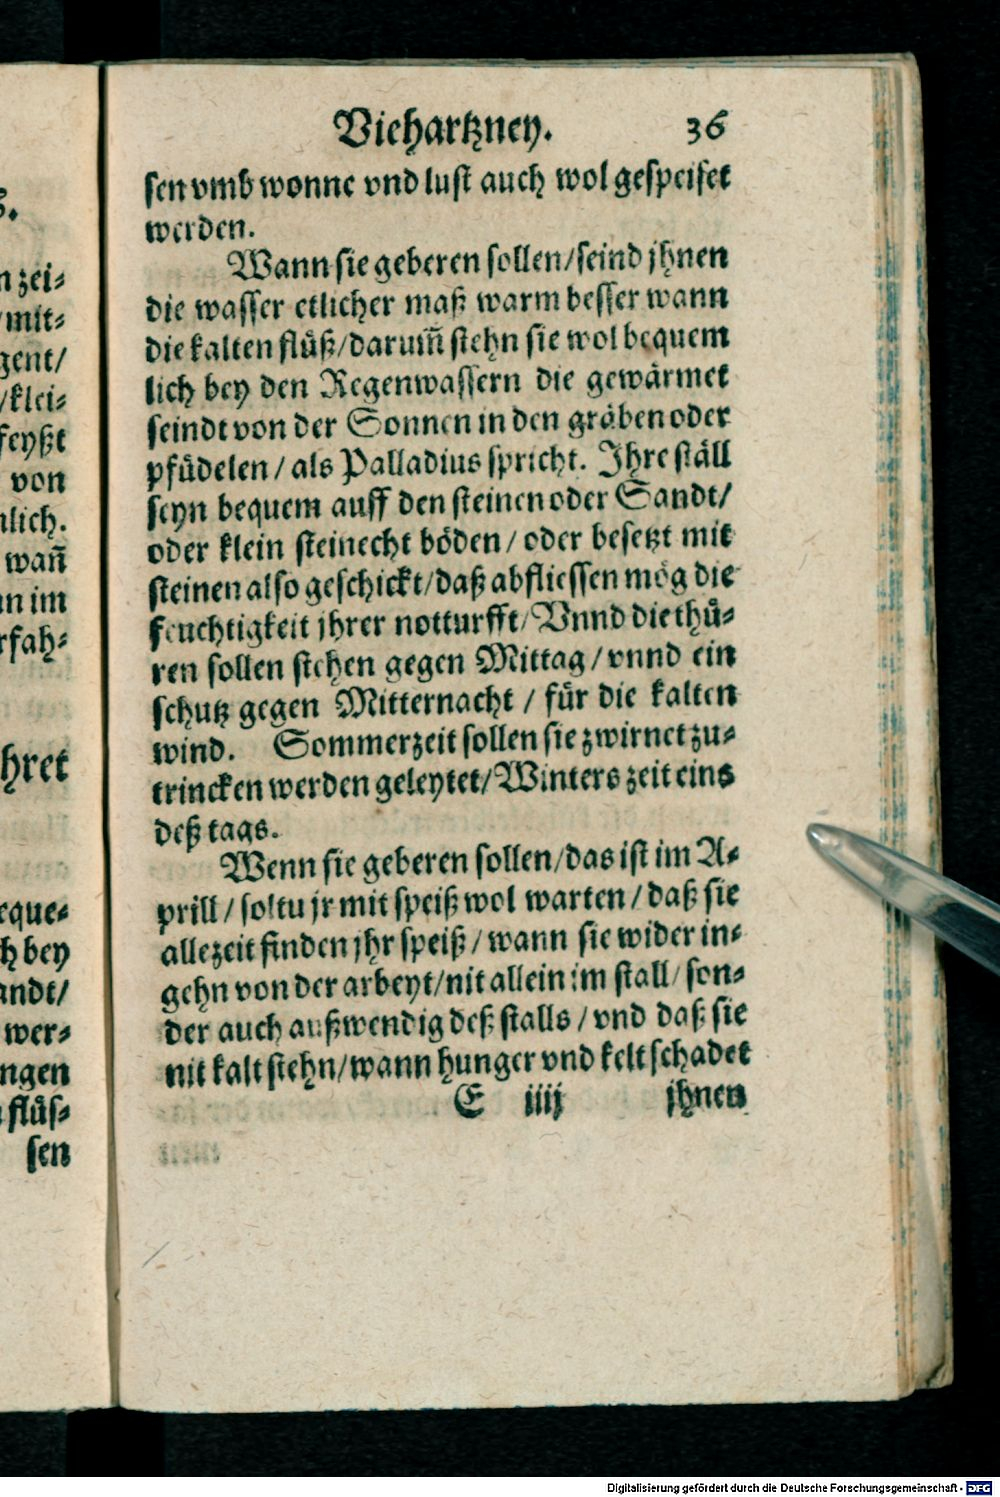 Viehartzney. 36
sen vmb wonne vnd lust auch wol gespeiset
werden.
Wann sie geberen sollen/seind jhnen
die wasser etlicher maß warm besser wann
die kalten flüß/darum̃ stehn sie wol bequem
lich bey den Regenwassern die gewärmet
seindt von der Sonnen in den gräben oder
pfüdelen/als Palladius spricht. Ihre ställ
seyn bequem auff den steinen oder Sandt/
oder klein steinecht böden/oder besetzt mit
steinen also geschickt/daß abfliessen mög die
feuchtigkeit jhrer notturfft/Vnnd die thü-
ren sollen stehen gegen Mittag/vnnd ein
schutz gegen Mitternacht/für die kalten
wind. Sommerzeit sollen sie zwirnet zu-
trincken werden geleytet/Winters zeit eins
deß tags.
Wenn sie geberen sollen/das ist im A-
prill/soltu jr mit speiß wol warten/daß sie
allezeit finden jhr speiß/wann sie wider in-
gehn von der arbeyt/nit allein im stall/son-
der auch außwendig deß stalls/vnd daß sie
nit kalt stehn/wann hunger vnd kelt schadet
E iiij jhnen
n zei-
mit-
gent/
/klei-
feyßt
von
lich.
wañ
n im
rfah-
hret
eque-
h bey
andt/
wer-
ngen
flüs-
sen
Digitalisierung gefördert durch die Deutsche Forschungsgemeinschaft - DFG